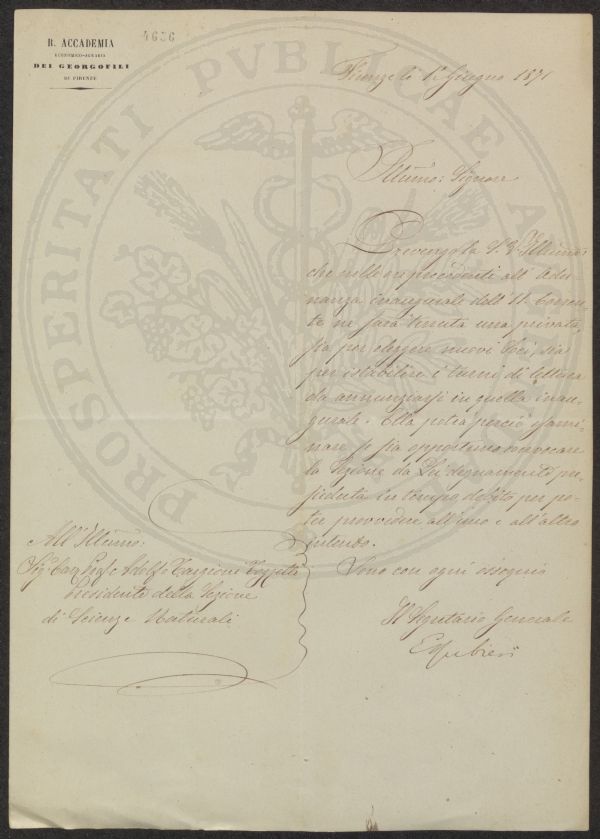 R. ACCADEMIA
ECONOMICO-AGRARIA
DEI GEORGOFILI
DI FIRENZE
4636
Firenze li 1 Giugno 1871
Illũmo: Signore
Prevengo la S. V. Illũma:
che nelle ore precedenti all' Adu-
nanza inaugurale dell' 11. Corren-
te ne sarà tenuta una privata,
sia per eleggere nuovi Soci, sia
per istabilire i turni di lettura
da annunziarsi in quella inau-
gurale. Ella potrà perciò esami-
nare se sia opportuno convocare
la Sezione da Lei degnamente pre-
sieduta in tempo debito per po-
ter provvedere all'uno e all'altro
intento.
Sono con ogni ossequio
Il Segretario Generale
All' Illũmo:
Sigr. Cav. Prof. Adolfo Targioni Tozzetti
Presidente della Sezione
di Scienze Naturali
PROSPERITATI PUBLICAE